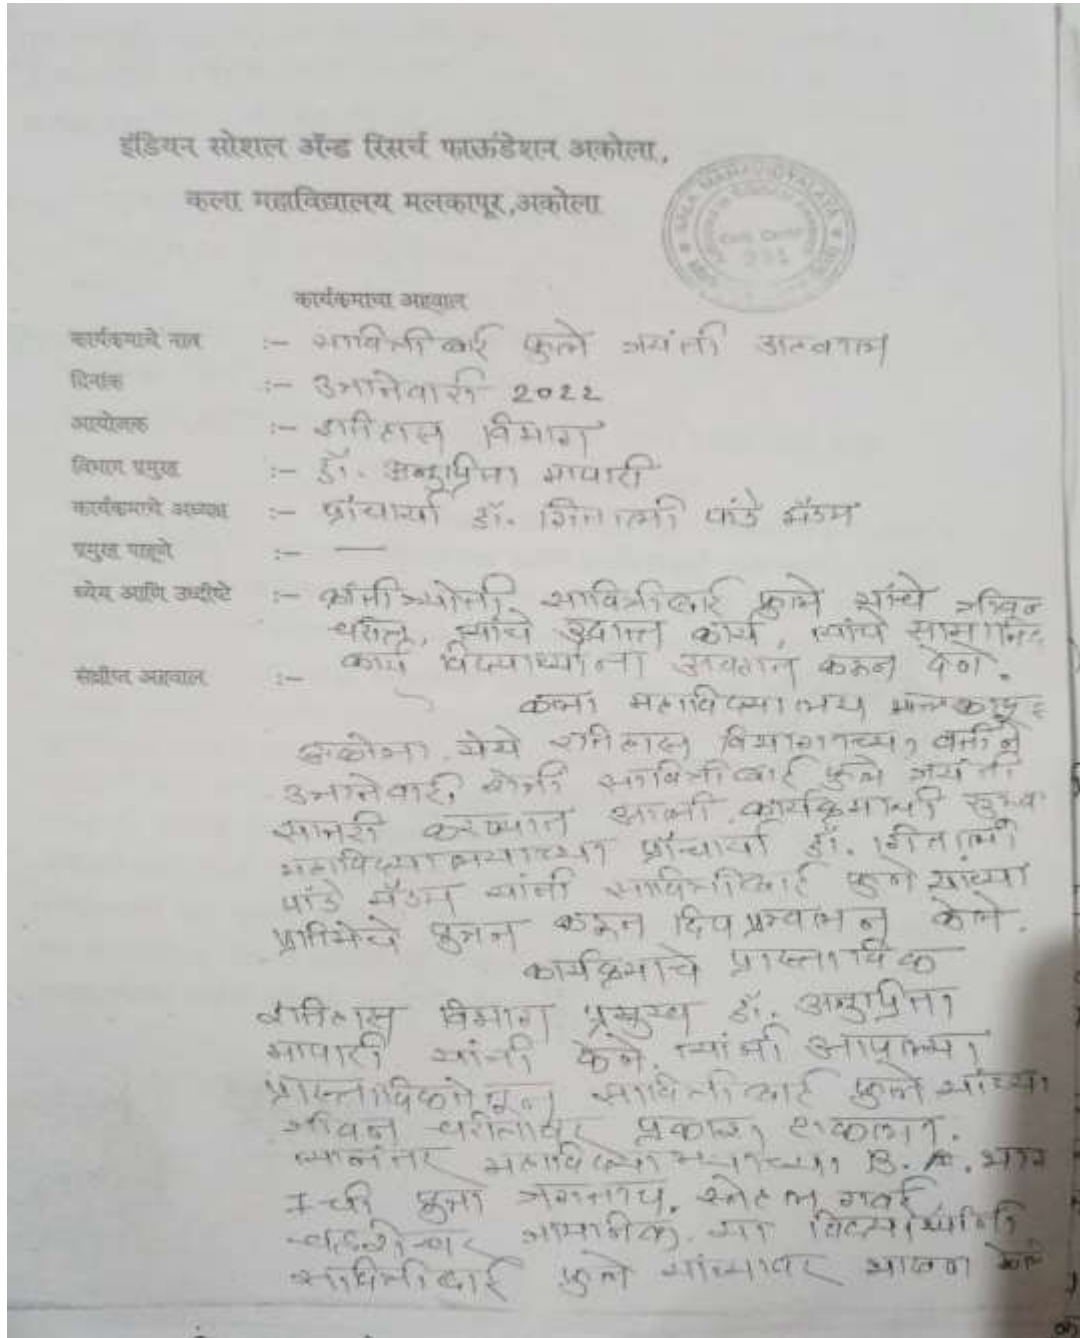 इंडियन सोशल अँन्ड रिसर्च फाऊंडेशन अकोला,
कला महाविद्यालय मलकापूर,अकोला
कार्यक्रमाचा अहवाल
कार्यक्रमाचे नाव :- सावित्रीबाई फुले जयंती अहवाल
दिनांक :- 3 जानेवारी 2022
आयोजक :- इतिहास विभाग
विभाग प्रमुख :- डॉ. अनुप्रिता
कार्यक्रमाचे अध्यक्ष :- प्राचार्या डॉ. पांडे मॅडम
प्रमुख पाहूणे :- —
ध्येय आणि उध्दीष्टे :- क्रांतीज्योती सावित्रीबाई फुले यांचे जीवन
चरीत्र, त्यांचे उदात्त कार्य, त्यांचे सामाजिक
कार्य विद्यार्थ्यांना अवगत करून देणे.
संक्षीप्त अहवाल :-
कला महाविद्यालय मलकापूर
अकोला येथे इतिहास विभागाच्या वतीने
3 जानेवारी रोजी सावित्रीबाई फुले जयंती
साजरी करण्यात आली. कार्यक्रमाची
महाविद्यालयाच्या प्राचार्या डॉ.
पांडे मॅडम यांनी सावित्रीबाई फुले यांच्या
प्रतिमेचे पुजन करून दिप प्रज्वलन केले.
कार्यक्रमाचे प्रास्ताविक
इतिहास विभाग प्रमुख डॉ. अनुप्रिता
यांनी केले. त्यांनी आपल्या
प्रास्ताविकातून सावित्रीबाई फुले यांच्या
जीवन चरीत्रावर प्रकाश टाकला.
त्यानंतर महाविद्यालयाच्या B. A. भाग
I ची पुजा
या विद्यार्थ्यांनी
सावित्रीबाई फुले यांच्यावर भाषण केले